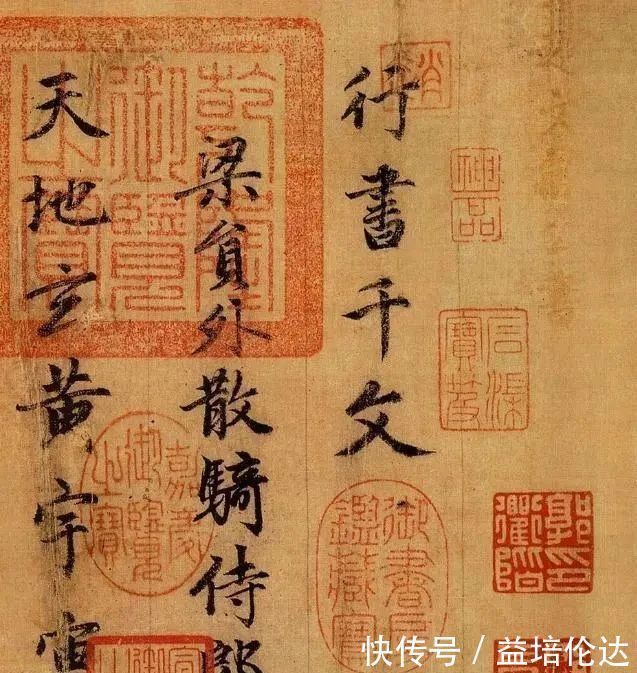 神品
石渠寶笈
行書千文
御書房鑑藏寶
梁員外散騎侍郎
乾隆御覽之寶
天地玄黄宇宙
嘉慶御覽之寶
快传号 / 益培伦达